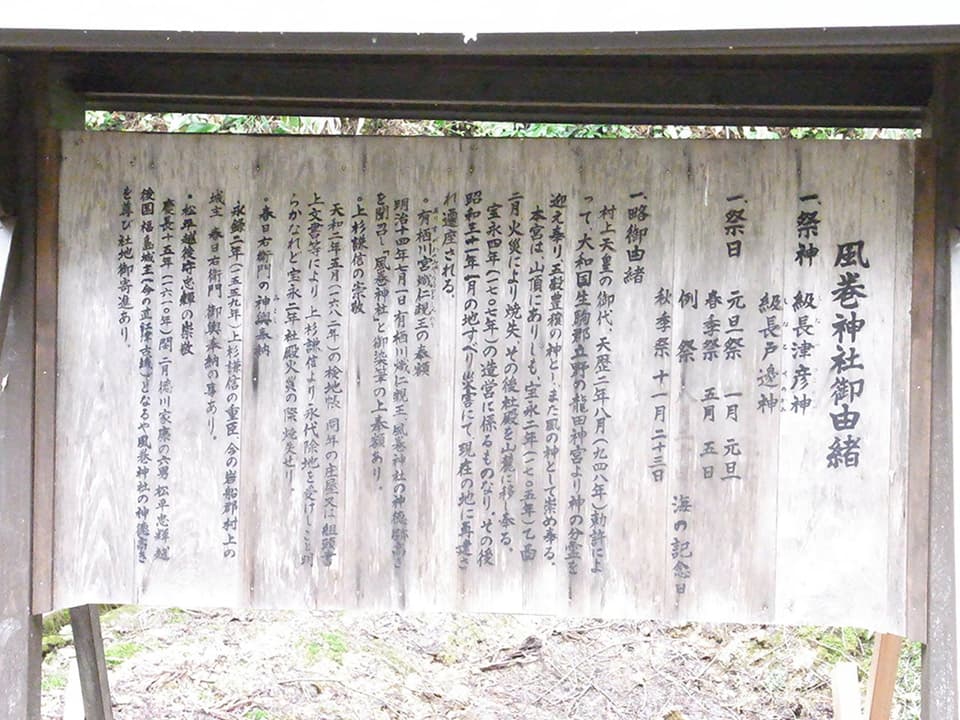 風巻神社御由緒
一、祭神 級長津彦神
級長戸邊神
一、祭日 元旦祭 一月 元旦
春季祭 五月 五日
例祭 海の記念日
秋季祭 十一月二十三日
一、略御由緒
村上天皇の御代、天歴二年八月(九四八年)勅許によ
って、大和国生駒郡立野の龍田神宮より神の分霊を
迎え奉り、五穀豊穣の神とし、また風の神として崇め奉る。
本宮は、山頂にありしも、宝永二年(一七〇五年)乙酉
二月火災により焼失、その後社殿を山麓に移し奉る。
宝永四年(一七〇七年)の造営に係るものなり。その後
昭和三十一年一月の地すべり災害にて、現在の地に再建さ
れ遷座される。
。有栖川宮熾仁親王の奉額
明治十四年七月一日有栖川熾仁親王、風巻神社の神徳高き
を聞召し「風巻神社」と御染筆の上奉額あり。
。上杉謙信の崇敬
天和二年五月(一六八二年)の検地帳、同年の庄屋又は組頭書
上文書等により上杉謙信より永代除地を受けしこと明
らかなれど宝永二年社殿火災の際焼失せり。
。春日右衛門の神輿奉納
永録二年(一五五九年)上杉謙信の重臣、今の岩船郡村上の
城主、春日右衛門、御輿奉納の事あり。
。松平越後守忠輝の崇敬
慶長十五年(一六一〇年)閏二月徳川家康の六男松平忠輝越
後国福島城主(今の直江津古城)となるや風巻神社の神徳高き
を尊び社地御寄進あり。